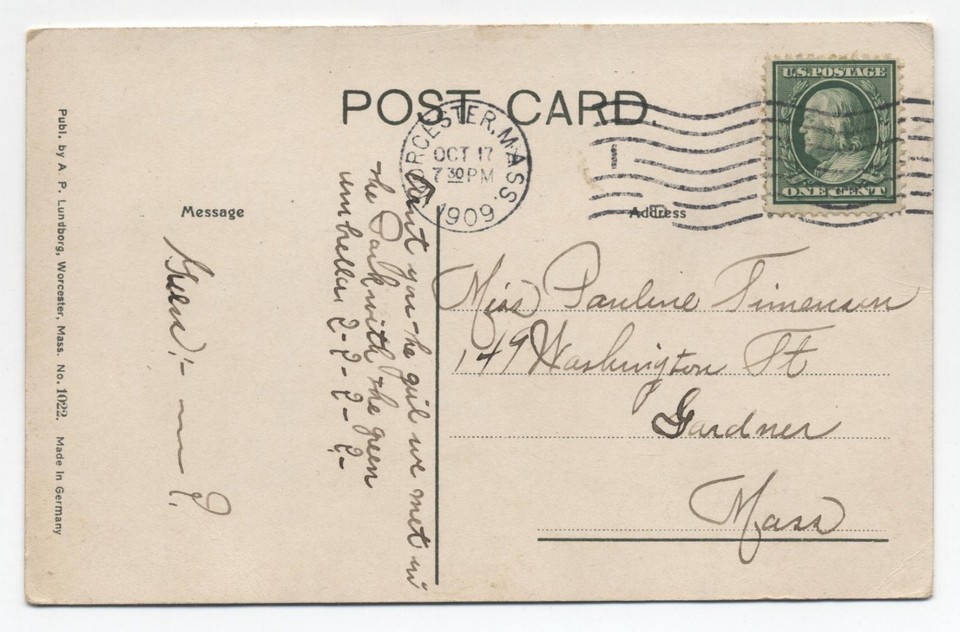 POST CARD.
WORCESTER, MASS.
OCT 17
7 30 PM
1909
U.S. POSTAGE
ONE CENT
Message
Address
Aint you the girl we met in
the Park with the green
umbrella ? - ? - ? - ? -
Guess! - ?
Miss Pauline Timenson
149 Washington St
Gardner
Mass
Publ. by A. P. Lundborg, Worcester, Mass. No. 1022. Made in Germany